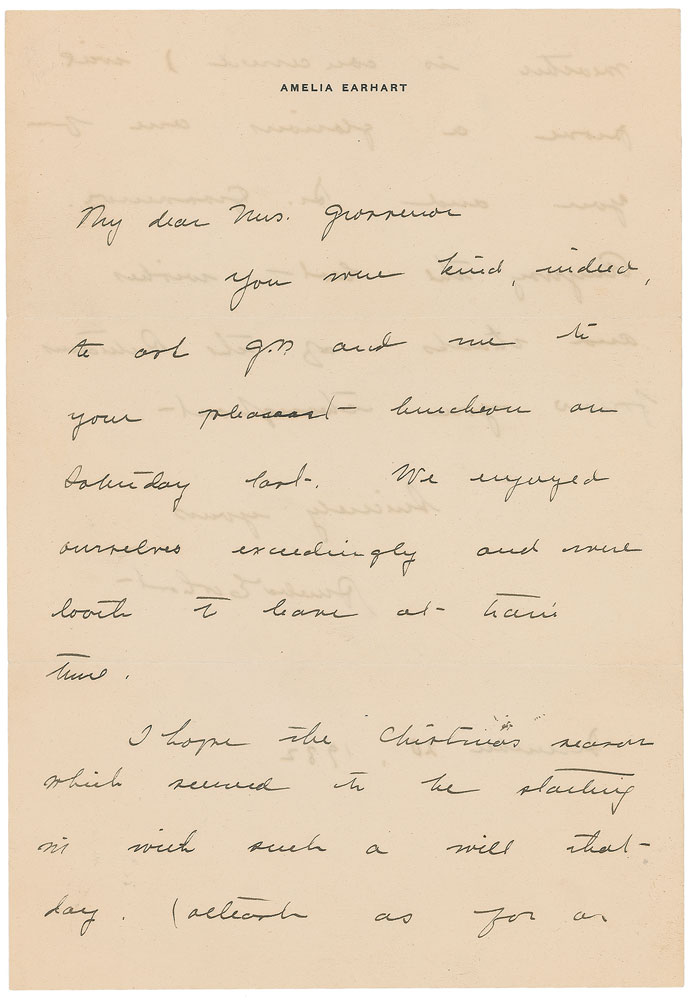 AMELIA EARHART
My dear Mrs. Grosvenor
You were kind, indeed,
to ask G.P. and me to
your pleasant luncheon on
Saturday last. We enjoyed
ourselves exceedingly and were
loath to leave at train
time.
I hope the Christmas season
which seemed to be starting
in with such a will that
day. (at least as far as